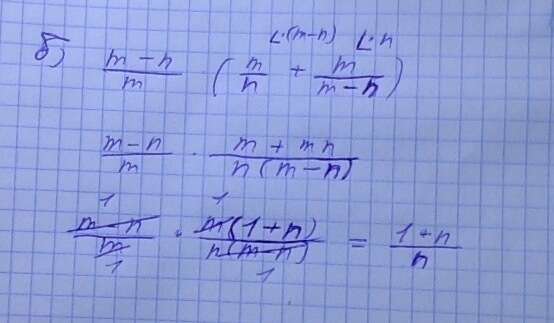 б) (m - n)/m · (m/n + m/(m - n)) ·(m-n) ·n
(m - n)/m · (m + mn)/(n(m - n))
(m - n)/m · (m(1 + n))/(n(m - n)) = (1 + n)/n 1 1 1 1